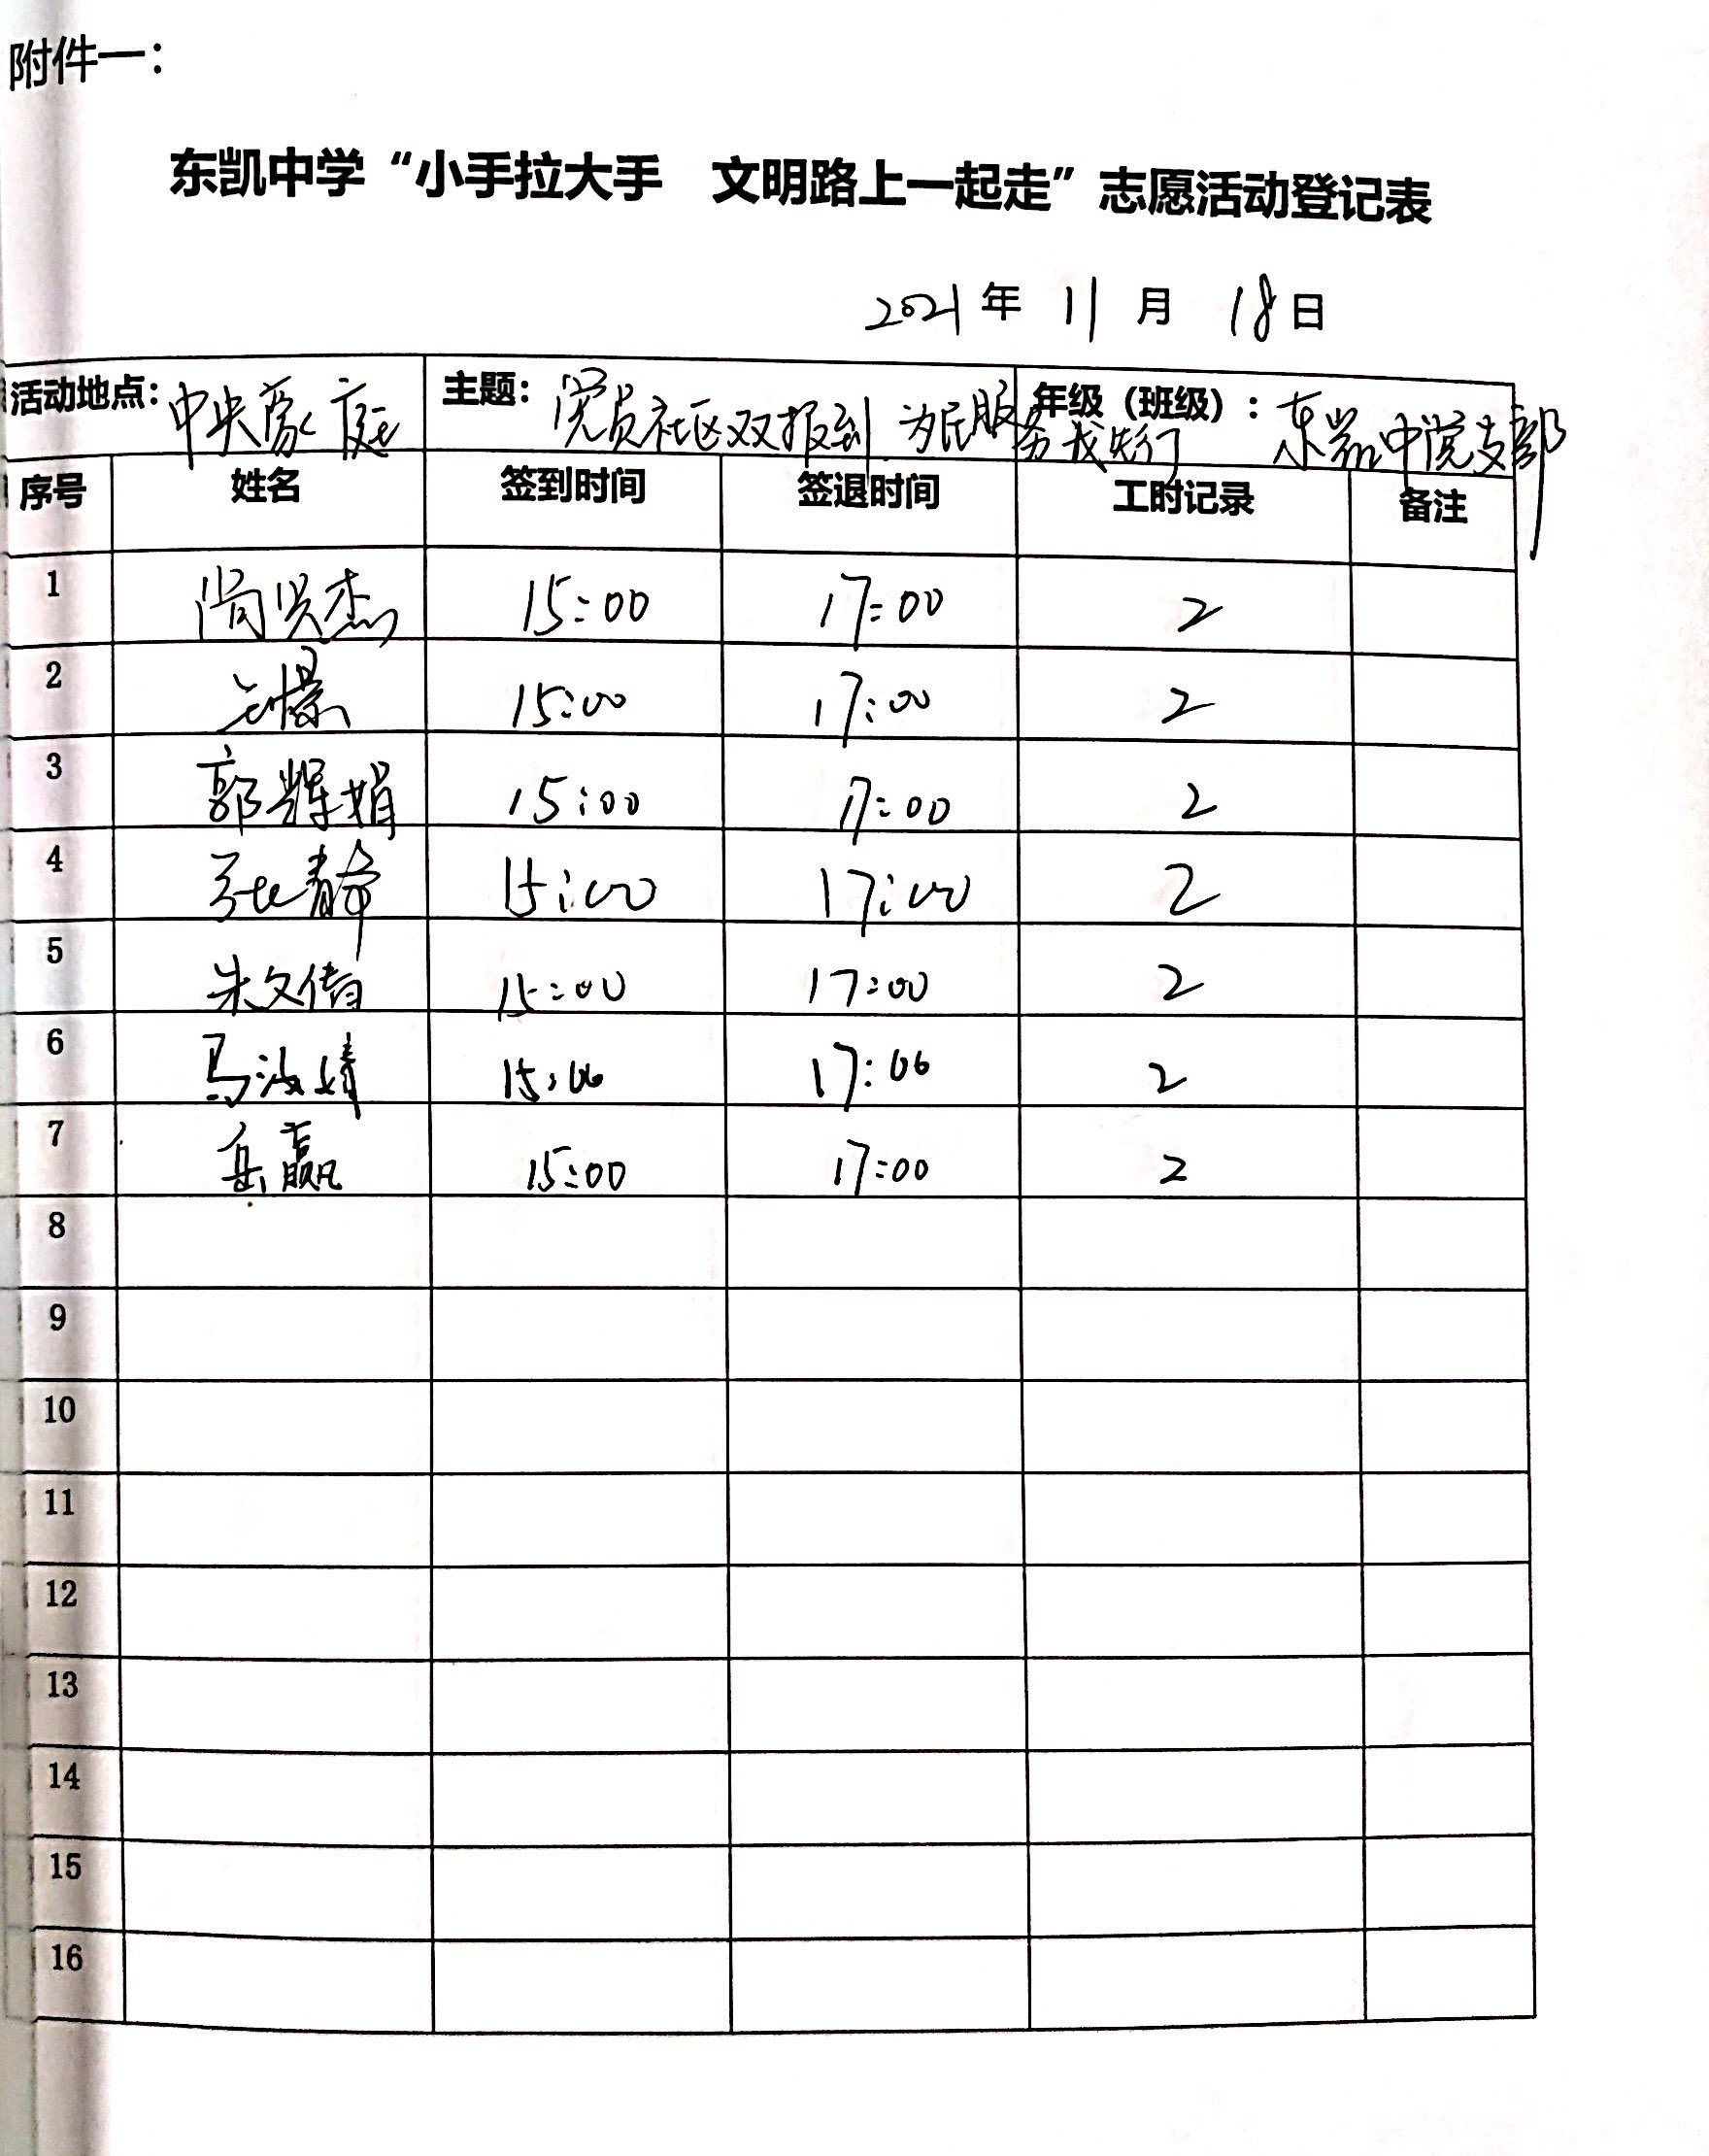 附件一：
东凯中学“小手拉大手　文明路上一起走”志愿活动登记表
2021年 11月 18日
活动地点：中央豪庭 主题：党员社区双报到 为民服务我先行 年级（班级）：东凯中党支部
序号 姓名 签到时间 签退时间 工时记录 备注
1 尚贤杰 15:00 17:00 2
2 15:00 17:00 2
3 郭辉娟 15:00 17:00 2
4 张静 15:00 17:00 2
5 朱文倩 15:00 17:00 2
6 马波婧 15:00 17:00 2
7 岳赢 15:00 17:00 2
8
9
10
11
12
13
14
15
16